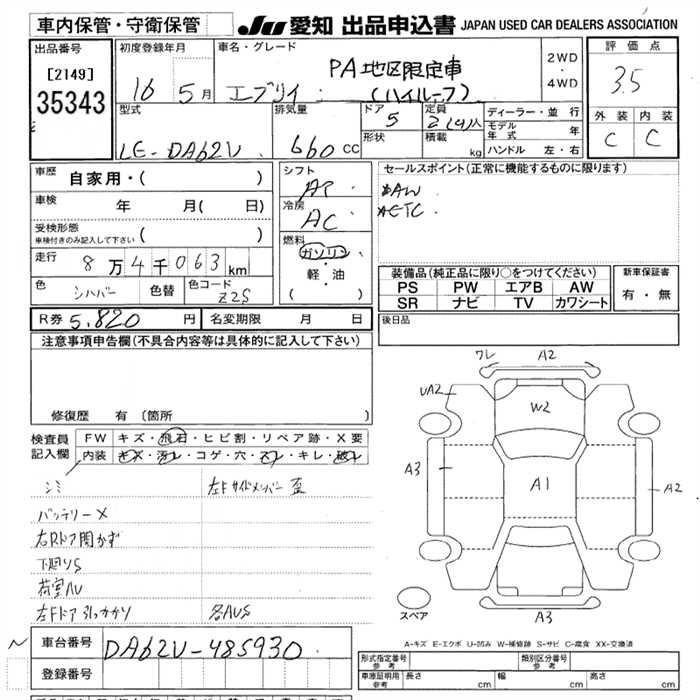 車内保管・守衛保管 JU 愛知 出品申込書 JAPAN USED CAR DEALERS ASSOCIATION
出品番号 初度登録年月 車名・グレード 2WD・4WD 評価点
[2149]
35343
16 5月 エブリイ PA地区限定車 (ハイルーフ) 3.5
型式 排気量 ドア 5 定員 2(4)人 ディーラー・並行 外装 内装
形状 積載 kg モデル年式 年 C C
LE-DA62V 660cc ハンドル 左・右
車歴 自家用・( ) シフト AT セールスポイント(正常に機能するものに限ります)
車検 年 月( 日) 冷房 AC
受検形態 車検付きのみ記入して下さい ( ) 燃料 ガソリン・軽・油 ( )
走行 8万4千063km
色 シルバー 色替 色コード Z2S
装備品(純正品に限り○をつけてください) 新車保証書
PS PW エアB AW 有・無
SR ナビ TV カワシート
R券 5,820円 名変期限 月 日 後日品
注意事項申告欄(不具合内容等は具体的に記入して下さい)
修復歴 有(箇所 )
検査員記入欄 FW キズ・飛石・ヒビ割・リペア跡・X要
内装 キズ・汚レ・コゲ・穴・スレ・キレ・破レ
シミ 左Fサイドメンバー歪
バッテリーX
右Rドア開かず
下廻りS
荷室AU
左Fドア引っかかり 各AUS
ワレ A2
UA2 W2
A3 A1 A2
A3
スペア
A-キズ E-エクボ U-凹み W-補修跡 S-サビ C-腐食 XX-交換済
車台番号 DA62V-485930
登録番号
形式指定番号 参考 類別区分番号 参考
車庫証明用 参考 長さ cm 幅 cm 高さ cm